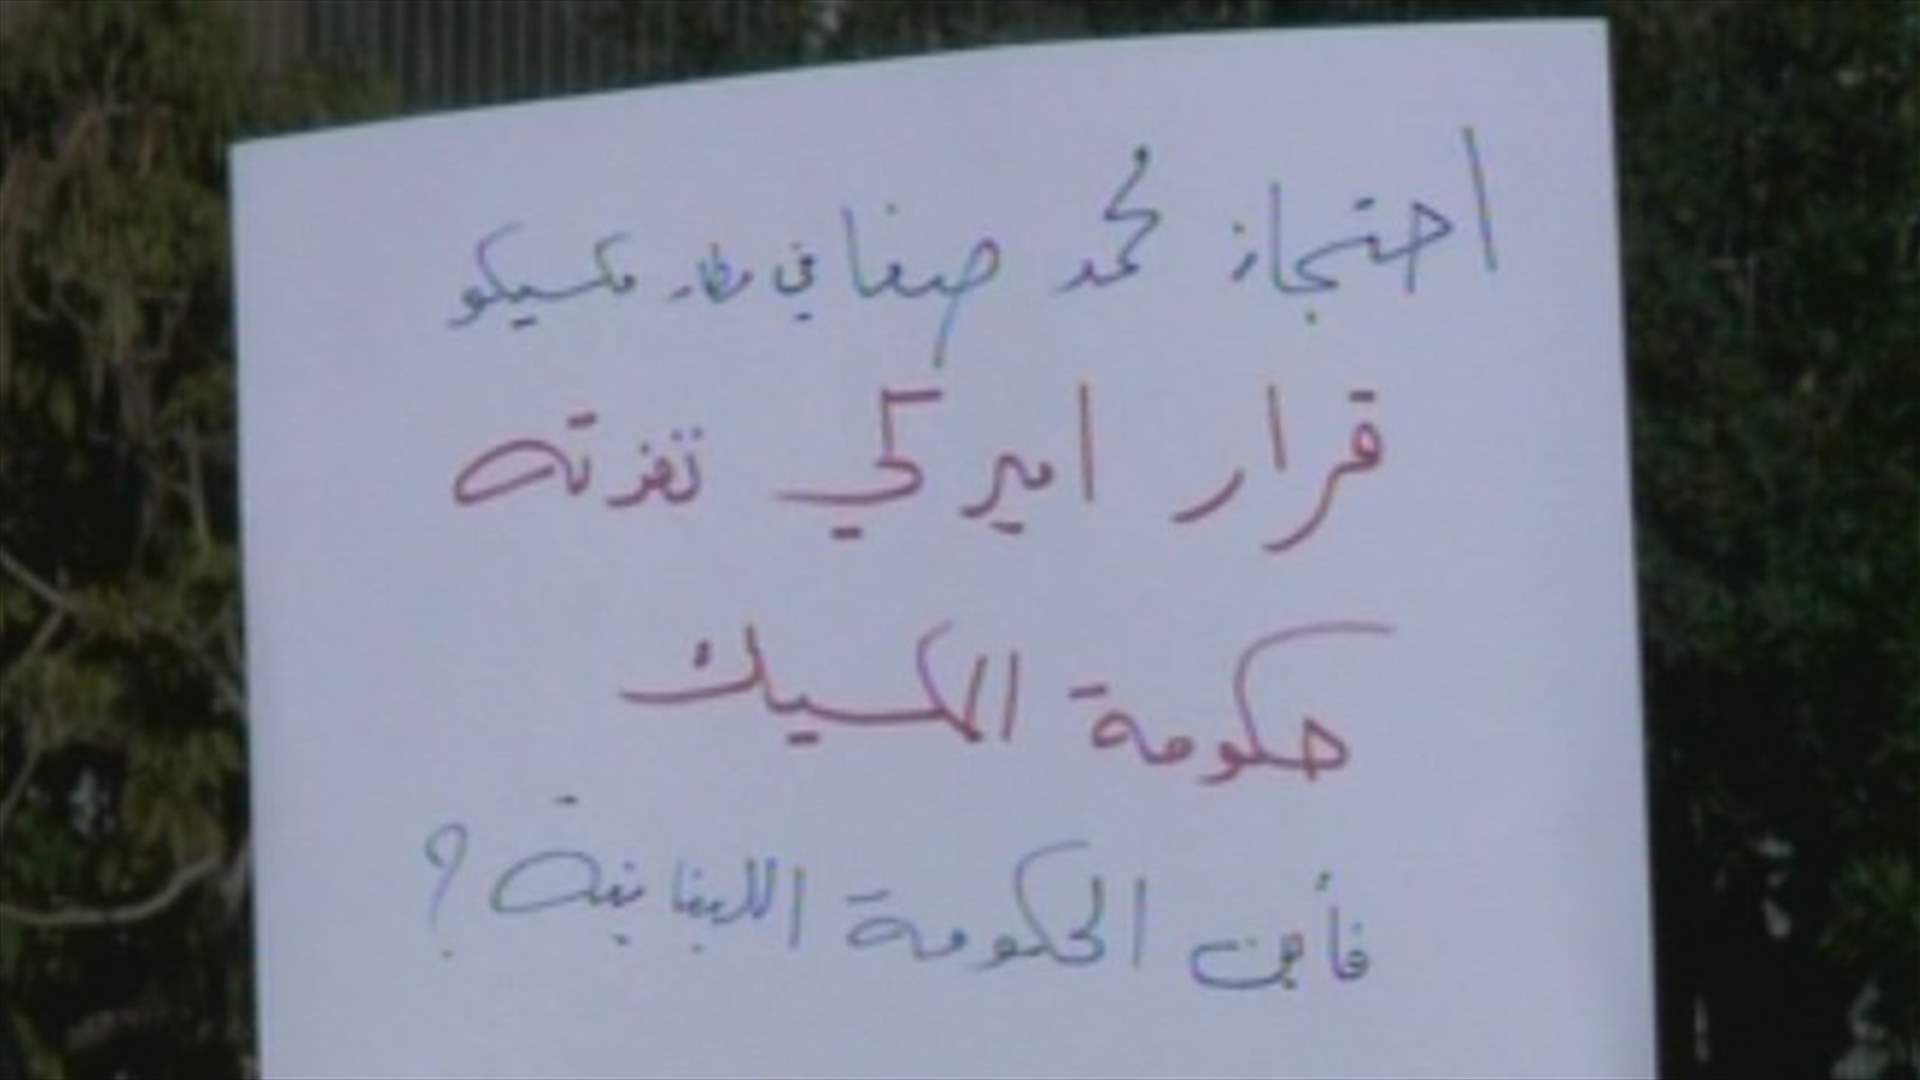 احتجاز محمد صفا في مطار مكسيكو
قرار اميركي نفذته
حكومة المكسيك
فأين الحكومة اللبنانية؟